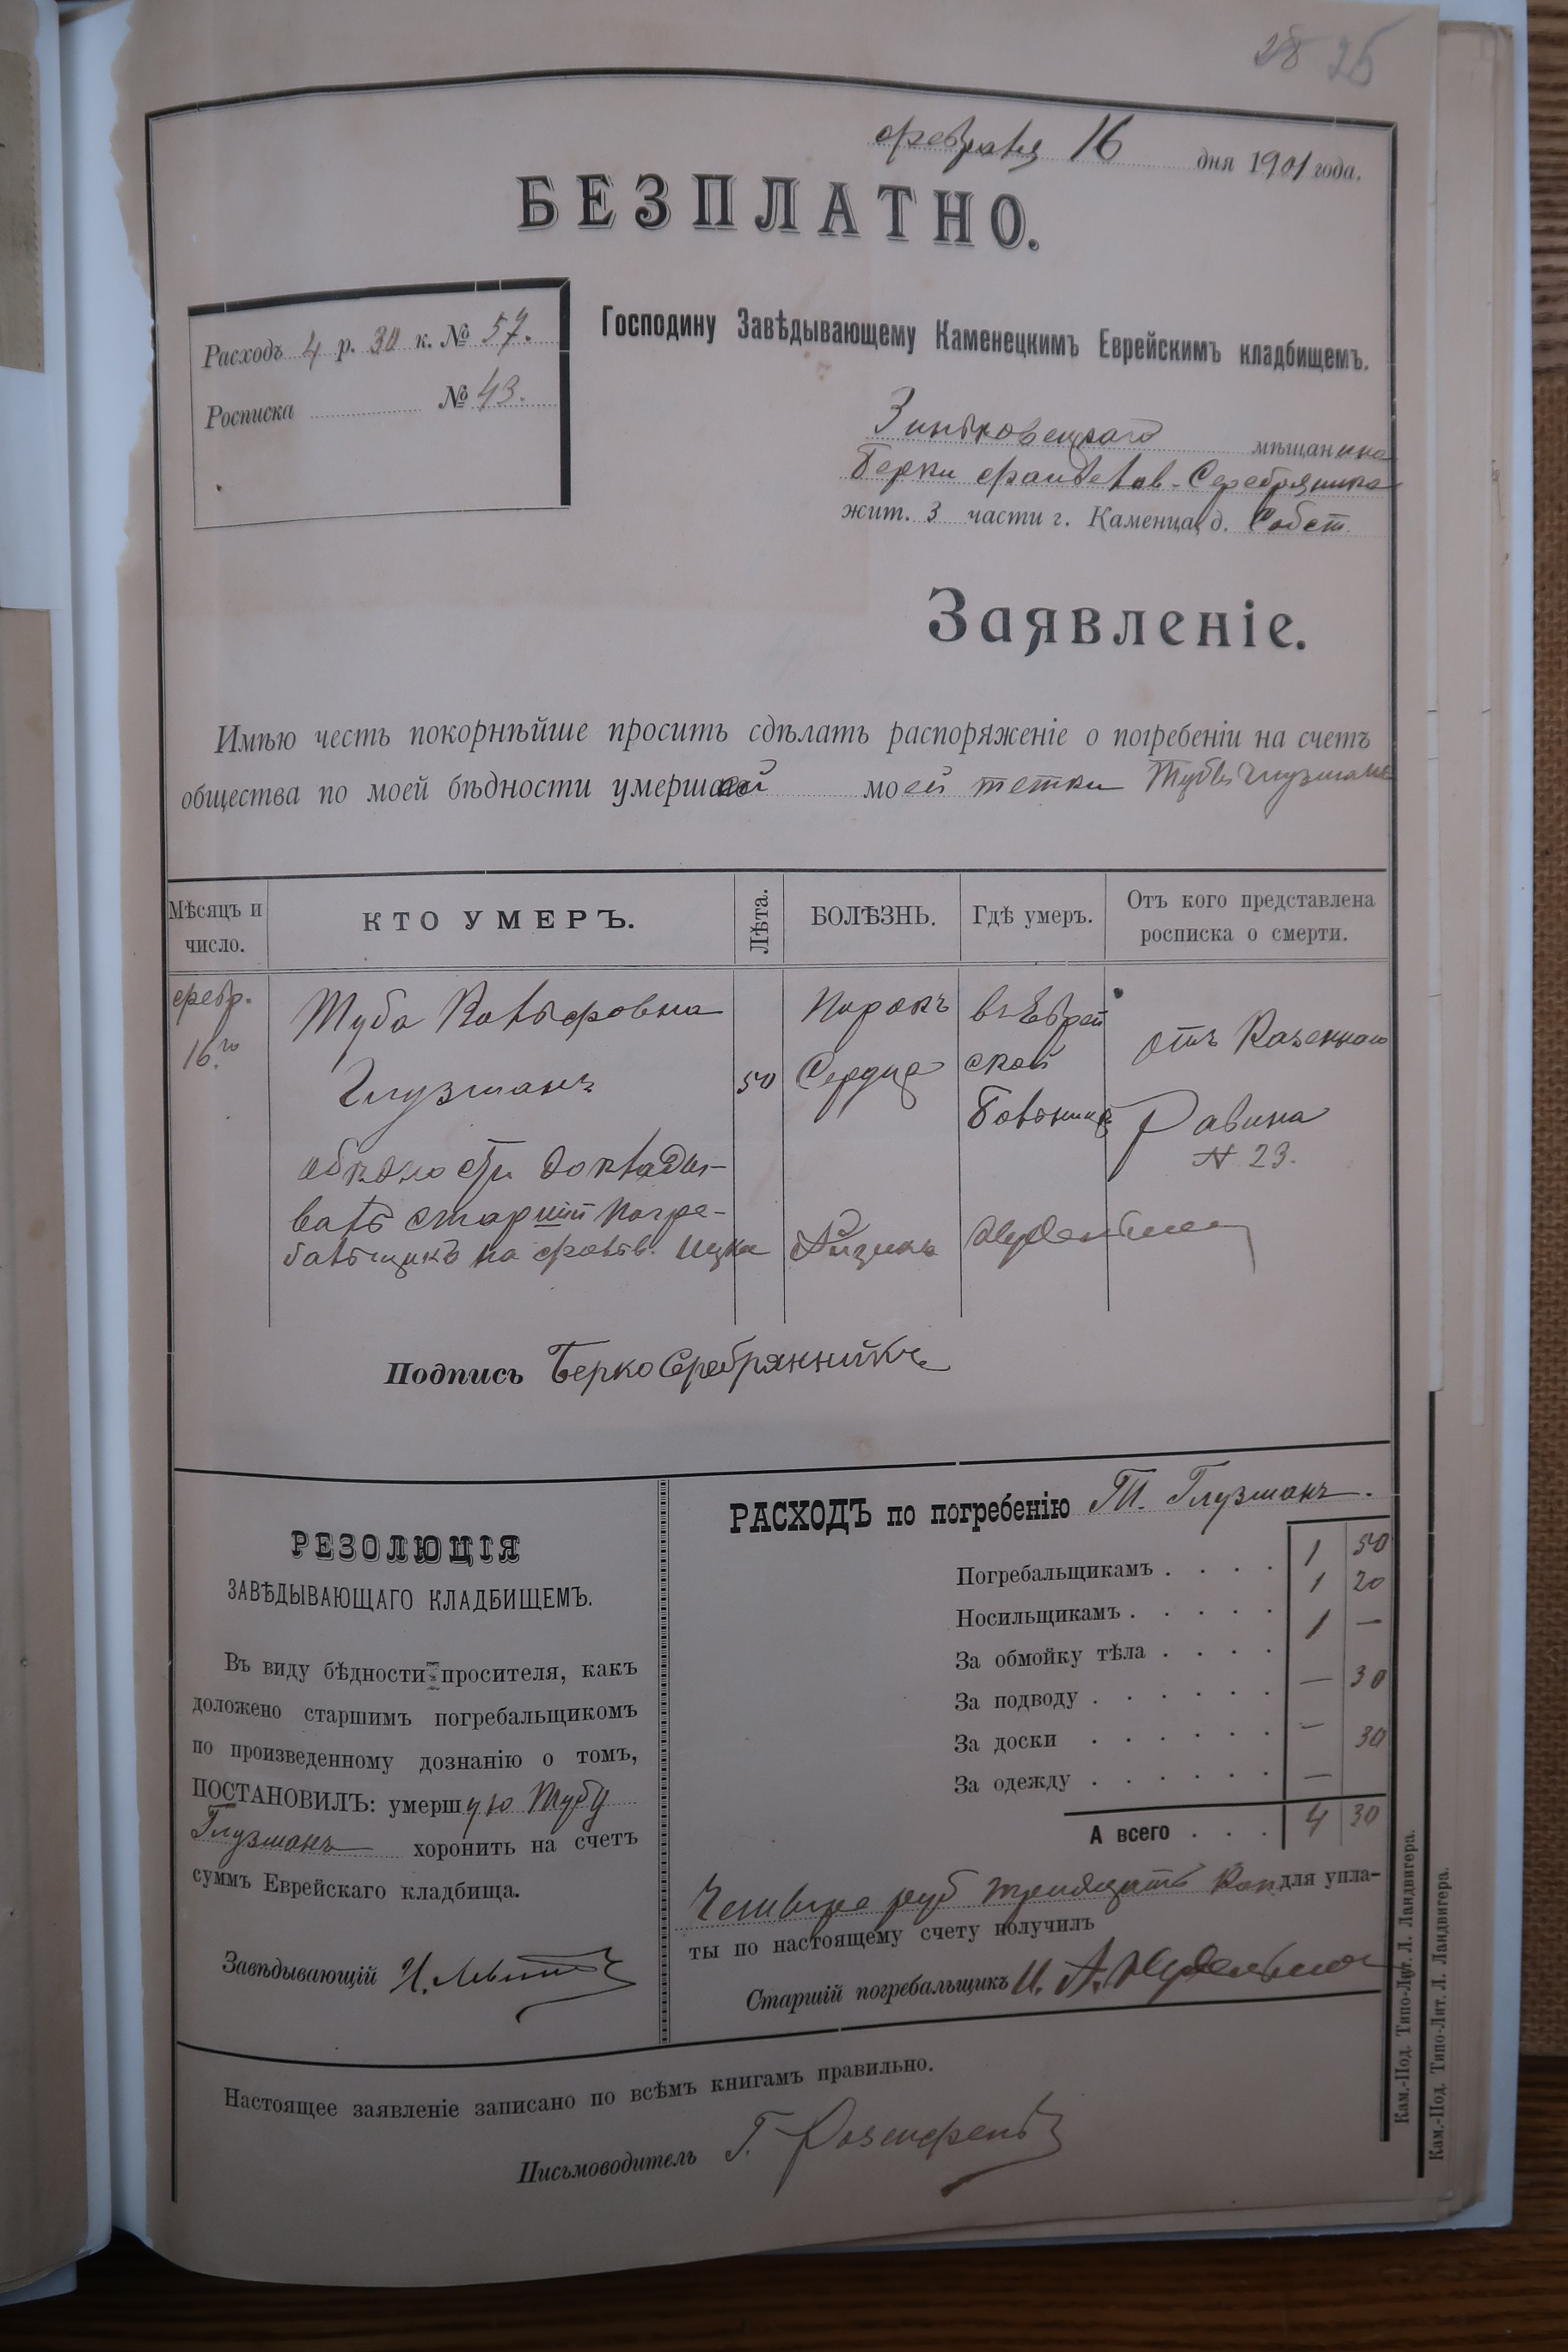 28 26
февраля 16 дня 1901 года.
БЕЗПЛАТНО.
Расходъ 4 р. 30 к. № 57.
Росписка № 43.
Господину Завѣдывающему Каменецкимъ Еврейскимъ кладбищемъ.
Зиньковецкаго мѣщанина
Берки Серебряника
жит. 3 части г. Каменца, д. Собст.
Заявленіе.
Имѣю честь покорнѣйше просить сдѣлать распоряженіе о погребеніи на счетъ
общества по моей бѣдности умершей моей тетки Тубы Глузманъ
Мѣсяцъ и число.
КТО УМЕРЪ.
Лѣта.
БОЛѢЗНЬ.
Гдѣ умеръ.
Отъ кого представлена росписка о смерти.
февр. 16го
Туба
Глузманъ
50
Порокъ Сердца
въ Еврейской Больницѣ
отъ Казеннаго Равина
№ 23.
о бѣдности докладываетъ
старшій погребальщикъ Ицко Айзикъ Нудельман
Подпись Берко Серебрянникъ
РЕЗОЛЮЦІЯ
ЗАВѢДЫВАЮЩАГО КЛАДБИЩЕМЪ.
Въ виду бѣдности просителя, какъ
доложено старшимъ погребальщикомъ
по произведенному дознанію о томъ,
ПОСТАНОВИЛЪ: умершую Тубу
Глузманъ хоронить на счетъ
суммъ Еврейскаго кладбища.
Завѣдывающій
РАСХОДЪ по погребенію Т. Глузманъ.
Погребальщикамъ . . . . 1 50
Носильщикамъ . . . . . 1 20
За обмойку тѣла . . . . 1 —
За подводу . . . . . . — 30
За доски . . . . . . — 30
За одежду . . . . . . —
А всего . . . . 4 30
Четыре руб тридцать коп для упла-
ты по настоящему счету получилъ
Старшій погребальщикъ И. А. Нудельман
Настоящее заявленіе записано по всѣмъ книгамъ правильно.
Письмоводитель Г. Розенфельд
Кам.-Под. Типо-Лит. Л. Ландвигера.
Кам.-Под. Типо-Лит. Л. Ландвигера.